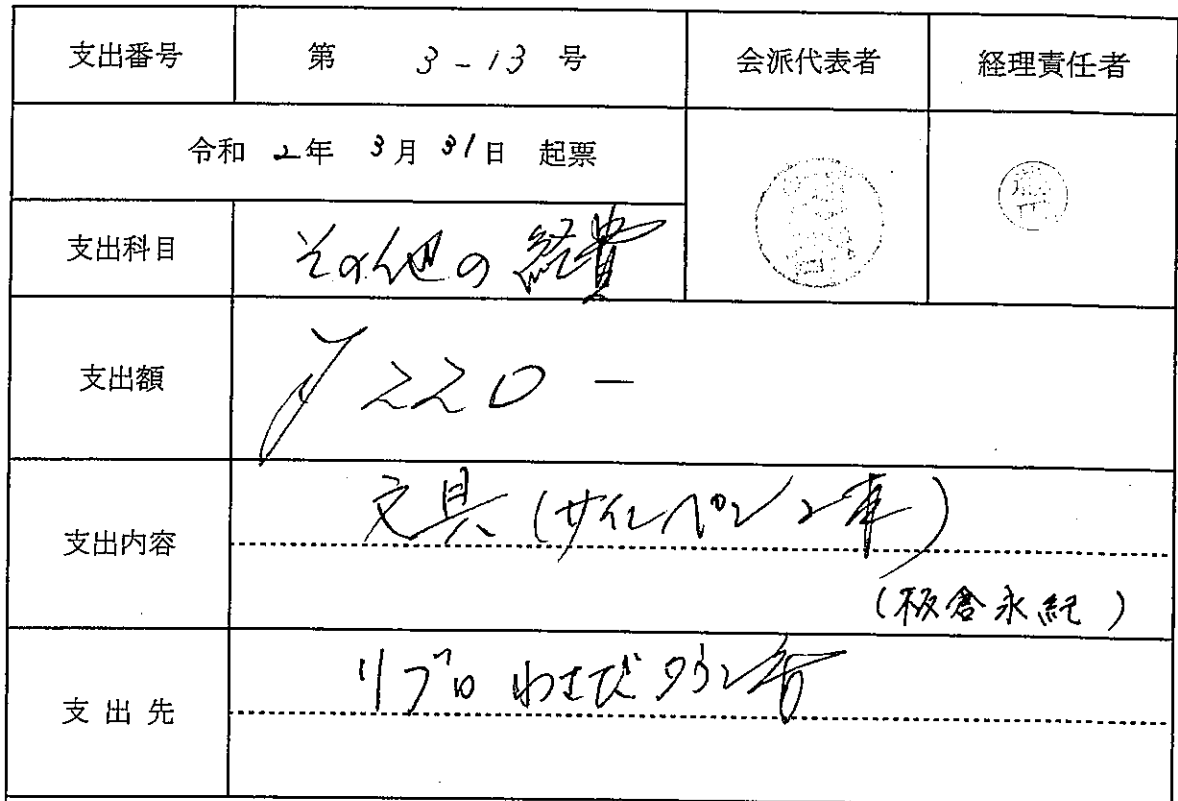 支出番号 第 3-13 号 会派代表者 経理責任者
令和 2年 3月 31日 起票
支出科目 その他の経費
支出額 ¥220-
支出内容 文具(サインペン2本)
(板倉永紀)
支出先 リブロ